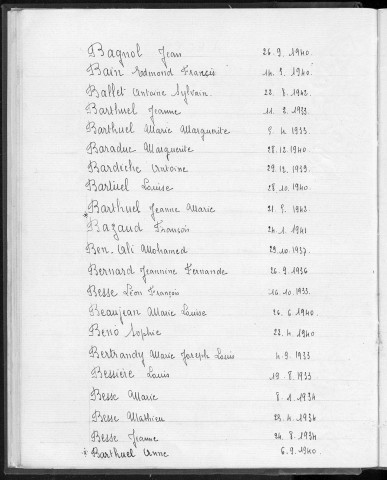 Bagnol Jean 26.9.1940.
Bain Edmond François 14.9.1940.
Ballet Antoine Sylvain. 22.8.1942.
Barthuel Jeanne 11.2.1933.
Barthuel Marie Marguerite 9.4.1933.
Baraduc Marguerite 28.12.1940.
Bardèche Antoine 29.12.1939.
Bartuel Louise 28.10.1940.
Barthuel Jeanne Marie 21.9.1942.
* Bazaud François 24.1.1941
Ben. Ali Mohamed 29.10.1937.
Bernard Jeannine Fernande 26.9.1936
Besse Léon François 16.10.1933.
Beaujean Marie Louise 26.6.1940.
Beno Sophie 22.4.1940
Bertrandy Marie Joseph Louis 4.9.1933
Bessière Louis 19.8.1933
Besse Marie 8.1.1934
Besse Mathieu 24.4.1934
Besse Jeanne 24.8.1934
* Barthuel Anne 6.9.1940.